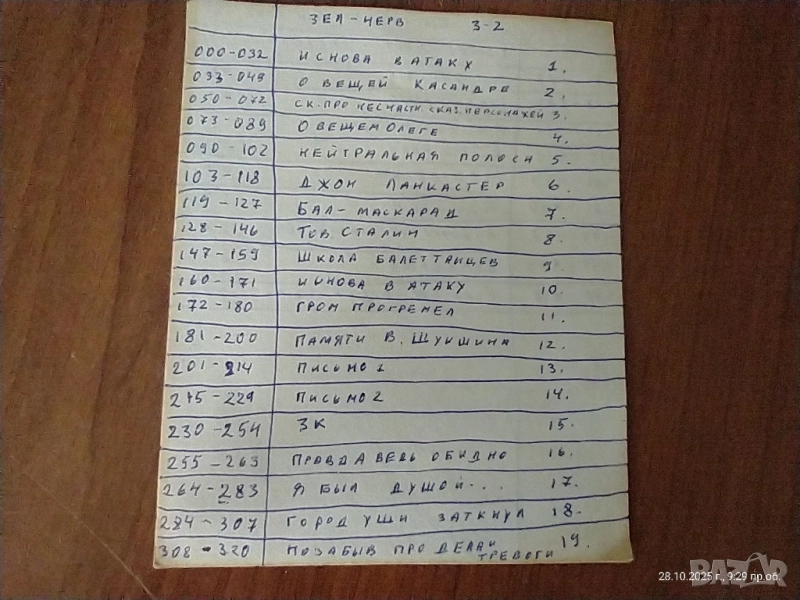 ЗЕЛ-ЧЕРВ 3-2
000-032 И СНОВА В АТАКУ 1.
033-049 О ВЕЩЕЙ КАСАНДРЕ 2.
050-072 СК. ПРО НЕСЧАСТН. СКАЗ. ПЕРСОНАЖЕЙ 3.
073-089 О ВЕЩЕМ ОЛЕГЕ 4.
090-102 НЕЙТРАЛЬНАЯ ПОЛОСА 5.
103-118 ДЖОН ЛАНКАСТЕР 6.
119-127 БАЛ-МАСКАРАД 7.
128-146 ТОВ СТАЛИН 8.
147-159 ШКОЛА БАЛЕТ ТАНЦЕВ 9.
160-171 И СНОВА В АТАКУ 10.
172-180 ГРОМ ПРОГРЕМЕЛ 11.
181-200 ПАМЯТИ В. ШУКШИНА 12.
201-214 ПИСЬМО 1 13.
215-229 ПИСЬМО 2 14.
230-254 ЗК 15.
255-263 ПРАВДА ВЕДЬ ОБИДНО 16.
264-283 Я БЫЛ ДУШОЙ... 17.
284-307 ГОРОД УШИ ЗАТКНУЛ 18.
308-320 ПОЗАБЫВ ПРО ДЕЛА И ТРЕВОГИ 19.
BAZAR
28.10.2025 г., 9:29 пр.об.